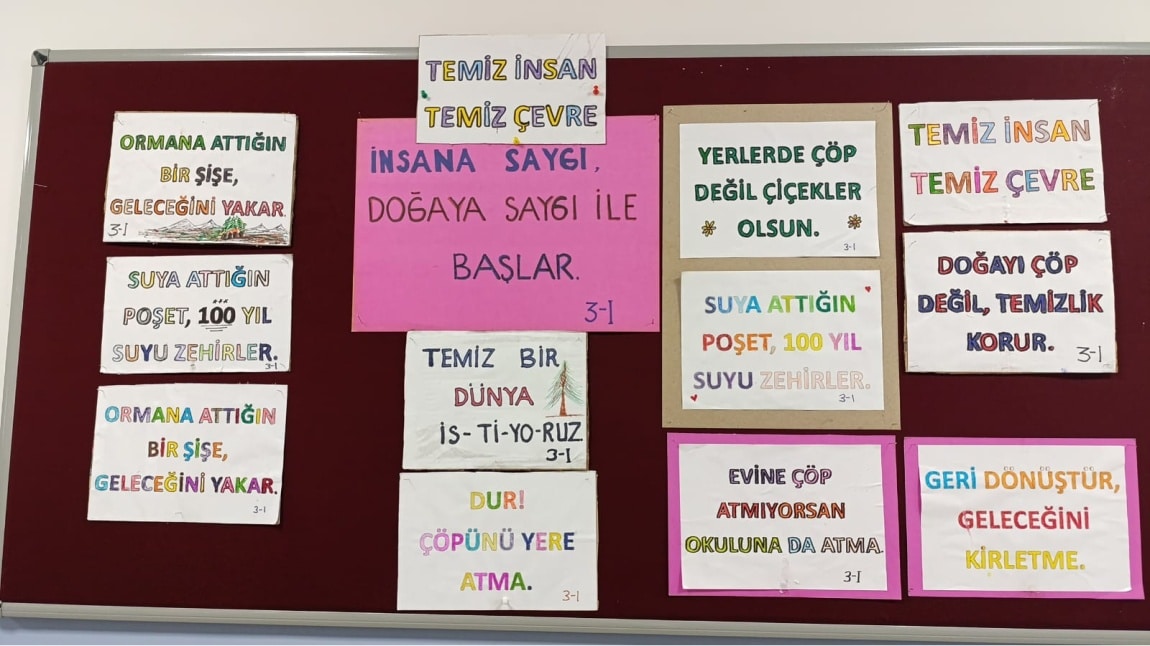 ORMANA ATTIĞIN
BİR ŞİŞE,
GELECEĞİNİ YAKAR.
3-I
SUYA ATTIĞIN
POŞET, 100 YIL
SUYU ZEHİRLER.
3-I
ORMANA ATTIĞIN
BİR ŞİŞE,
GELECEĞİNİ YAKAR.
3-I
TEMİZ İNSAN
TEMİZ ÇEVRE
İNSANA SAYGI,
DOĞAYA SAYGI İLE
BAŞLAR.
3-I
TEMİZ BİR
DÜNYA
İS-Tİ-YO-RUZ
3-I
DUR!
ÇÖPÜNÜ YERE
ATMA.
3-I
YERLERDE ÇÖP
DEĞİL ÇİÇEKLER
OLSUN.
3-I
SUYA ATTIĞIN
POŞET, 100 YIL
SUYU ZEHİRLER.
3-I
EVİNE ÇÖP
ATMIYORSAN
OKULUNA DA ATMA.
3-I
TEMİZ İNSAN
TEMİZ ÇEVRE
DOĞAYI ÇÖP
DEĞİL, TEMİZLİK
KORUR.
3-I
GERİ DÖNÜŞTÜR,
GELECEĞİNİ
KİRLETME.